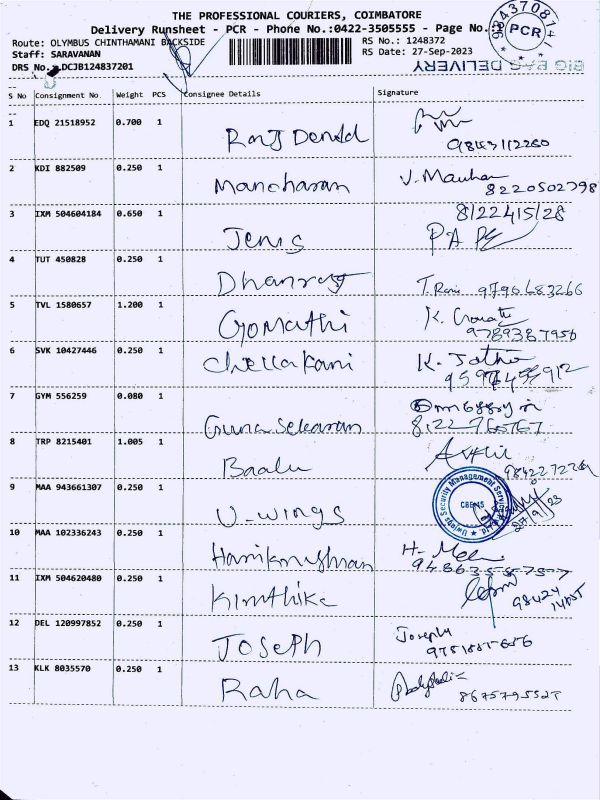 THE PROFESSIONAL COURIERS, COIMBATORE
Delivery Runsheet - PCR - Phone No.:0422-3505555 - Page No.:
Route: OLYMBUS CHINTHAMANI BACKSIDE
RS No.: 1248372
Staff: SARAVANAN
RS Date: 27-Sep-2023
DRS No.: DCJB124837201
PCR
BIG BAG DELIVERY
S No Consignment No. Weight PCS Consignee Details Signature
1 EDQ 21518952 0.700 1 Raj Donald
9843112260
2 KDI 882509 0.250 1 Manoharan
8220502798
3 IXM 504604184 0.650 1 Jenis 8122415128
4 TUT 450828 0.250 1 Dhanraj 9796683266
5 TVL 1580657 1.200 1 Gomathi
9789387956
6 SVK 10427446 0.250 1 Chellakani
7 GYM 556259 0.080 1 Gunasekaran
8 TRP 8215401 1.005 1 Baalu
9842272269
9 MAA 943661307 0.250 1 U-wings
Uwings Security Management Services
CBE
27/9/23
10 MAA 102336243 0.250 1 Harikrushnan
11 IXM 504620480 0.250 1 Kirithika
12 DEL 120997852 0.250 1 Joseph Joseph
13 KLK 8035570 0.250 1 Raha
8675795525